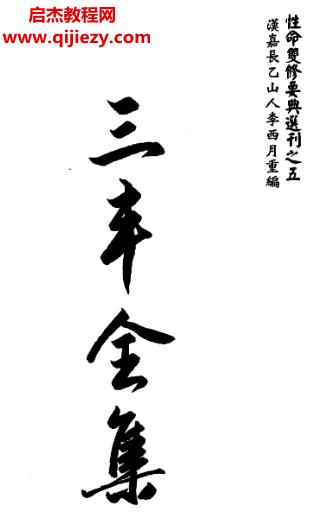 启杰教程网
www.qijiezy.com
性命雙修要典選刊之五
漢嘉長乙山人李西月重編
三丰全集